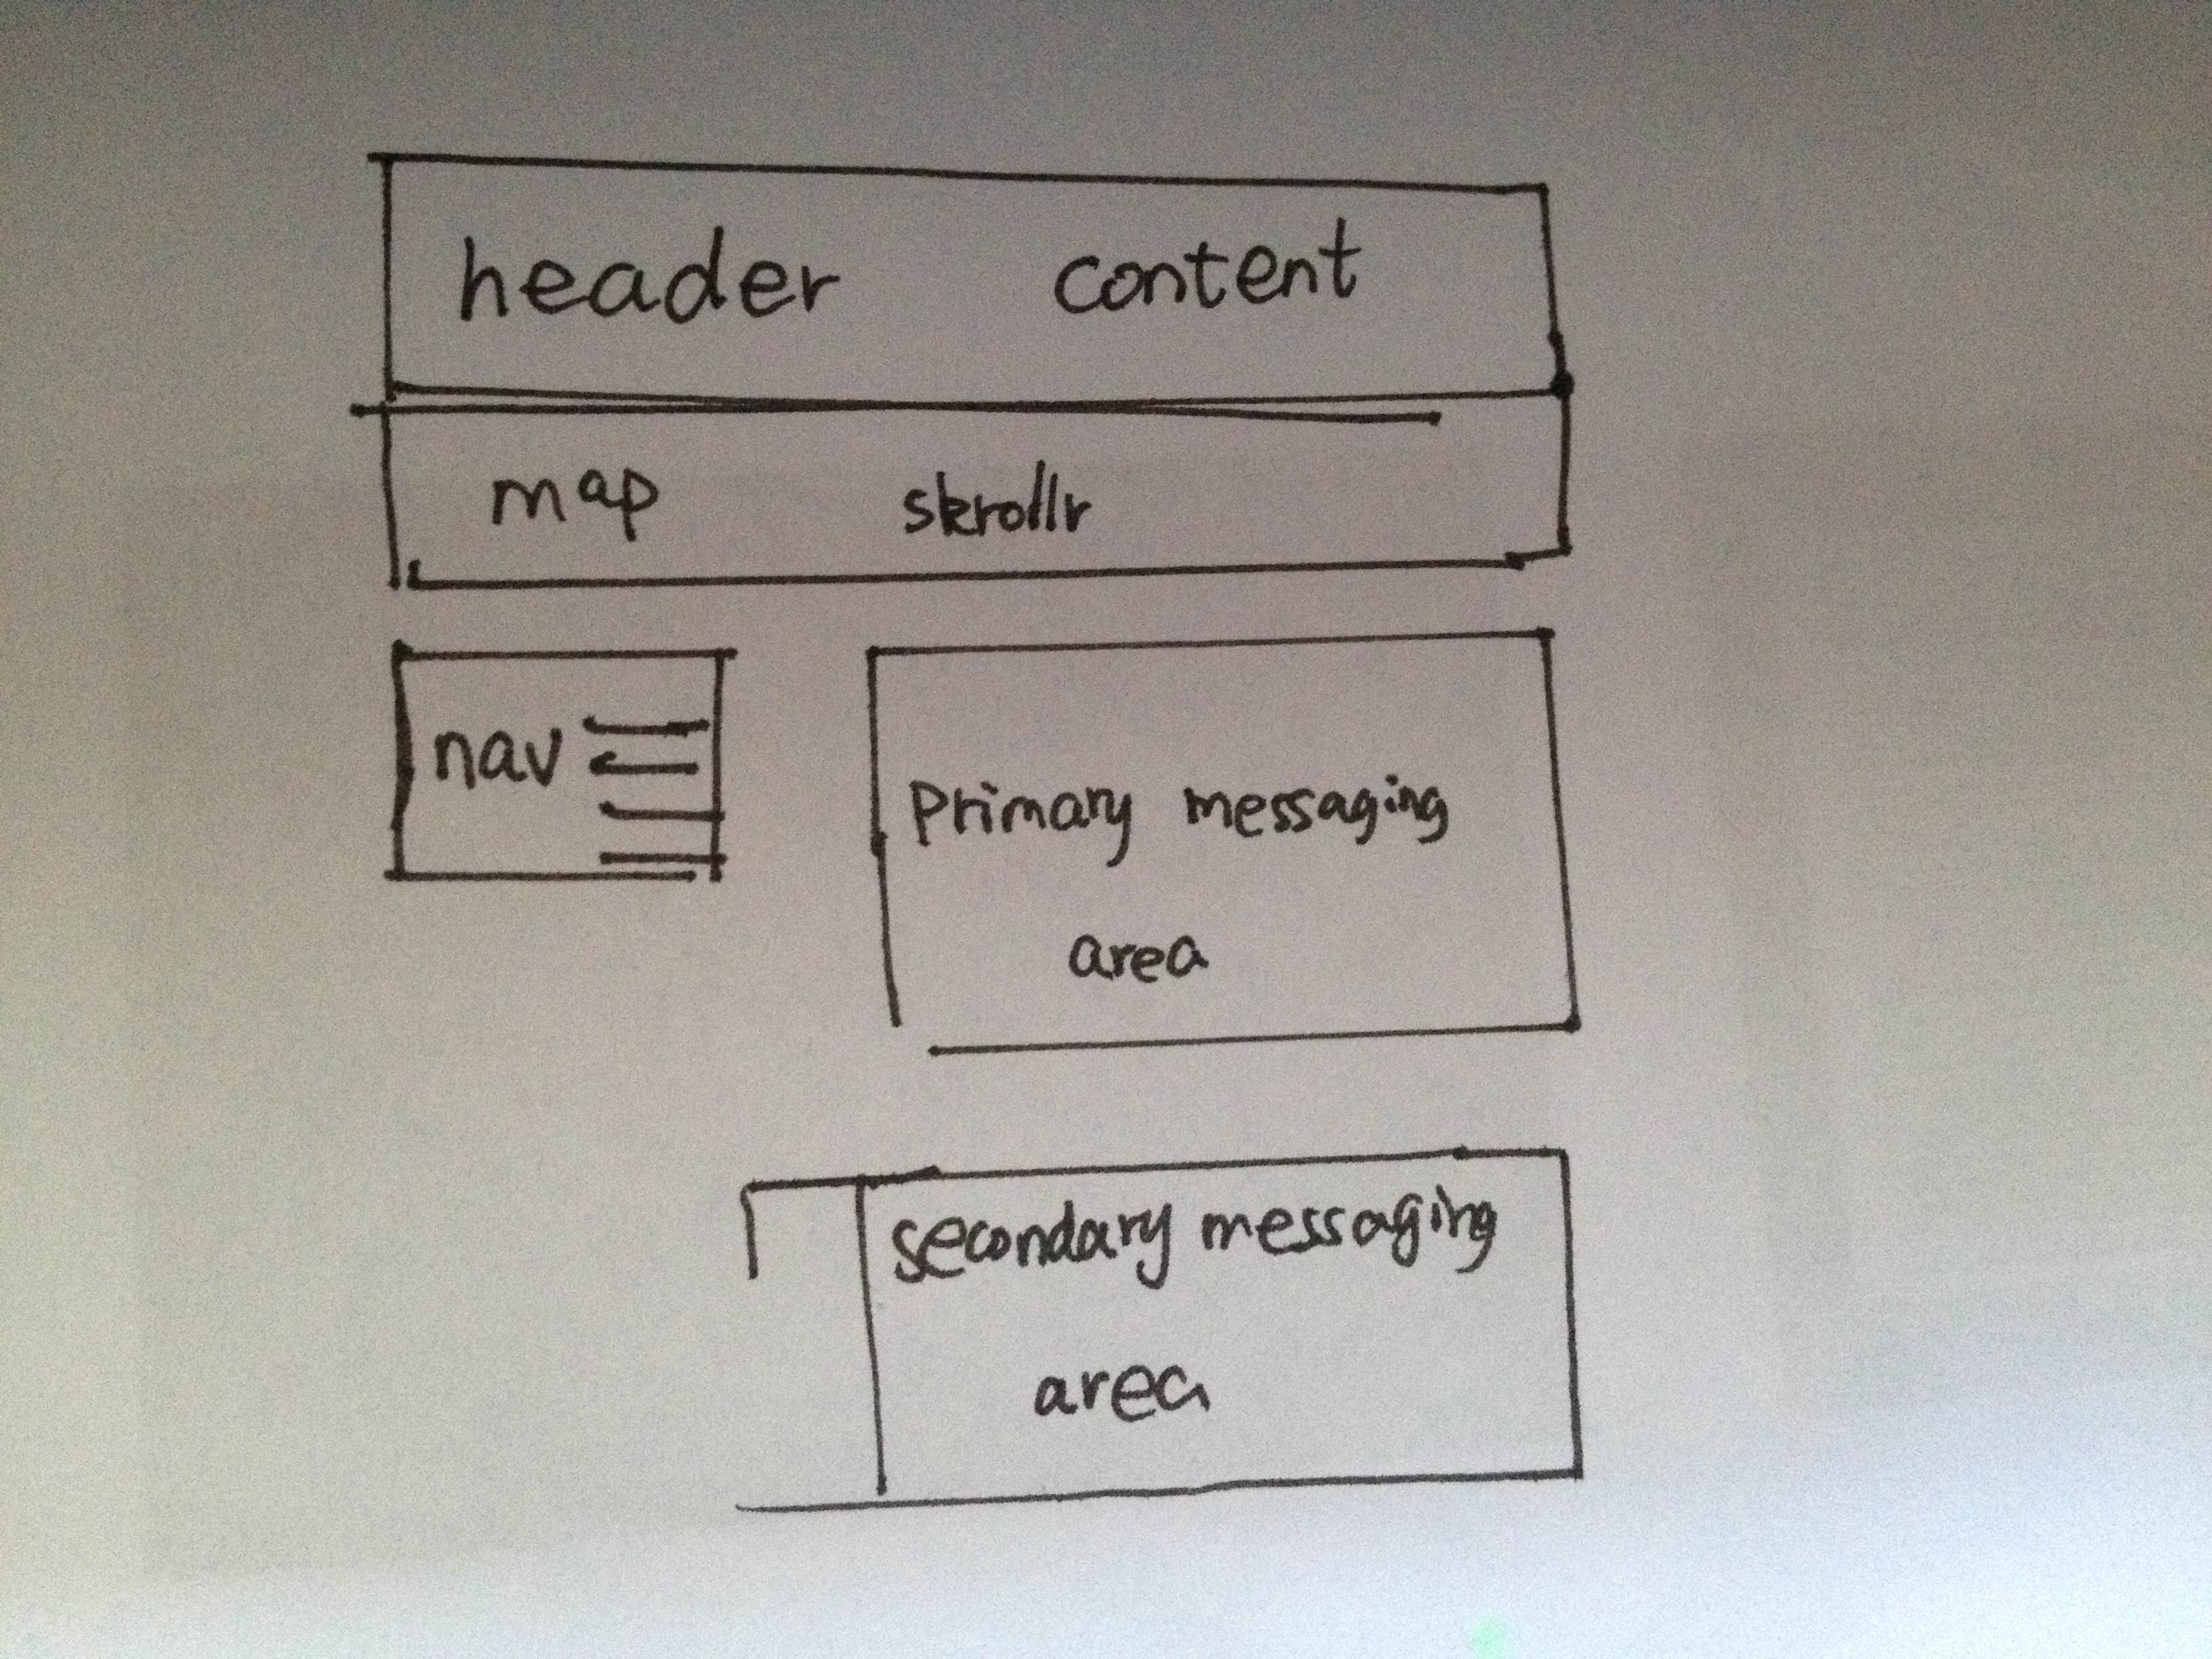 header content
map skrollr
nav
Primary messaging
area
secondary messaging
area